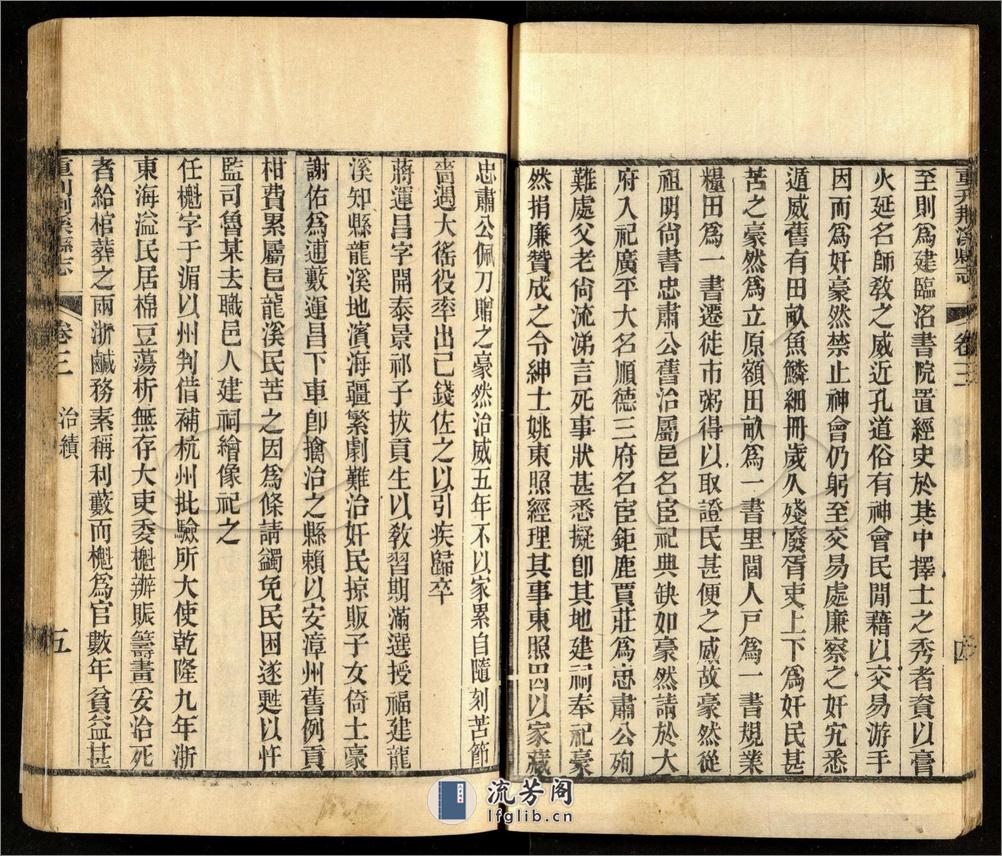 重刋荆溪縣志 卷三 四
至則爲建臨洺書院置經史於其中擇士之秀者資以膏
火延名師敎之威近孔道俗有神會民閒藉以交易游手
因而爲奸豪然禁止神會仍躬至交易處廉察之奸宄悉
遁威舊有田畝魚鱗細冊歲久殘廢胥吏上下爲奸民甚
苦之豪然爲立原額田畝爲一書里閭人戸爲一書規業
糧田爲一書遷徒市粥得以取證民甚便之威故豪然從
祖明尙書忠肅公舊治屬邑名宦祀典缺如豪然請於大
府入祀廣平大名順德三府名宦鉅鹿賈莊爲忠肅公殉
難處父老尙流涕言死事狀甚悉擬卽其地建祠奉祀豪
然捐廉贊成之令紳士姚東照經理其事東照因以家藏
忠肅公佩刀贈之豪然治威五年不以家累自隨刻苦節
嗇遇大徭役率出己錢佐之以引疾歸卒
蔣運昌字開泰景祁子拔貢生以敎習期滿選授福建龍
溪知縣龍溪地濱海疆繁劇難治奸民掠販子女倚土豪
謝佑爲逋藪運昌下車卽擒治之縣賴以安漳州舊例貢
柑費累屬邑龍溪民苦之因爲條請蠲免民困遂甦以忤
監司魯某去職邑人建祠繪像祀之
任櫆字于湄以州判借補杭州批驗所大使乾隆九年浙
東海溢民居棉豆蕩析無存大吏委櫆辦賑籌畫妥治死
者給棺葬之兩浙鹹務素稱利藪而櫆爲官數年貧益甚
重刋荆溪縣志 卷三 治績 五
流芳阁
lfglib.cn